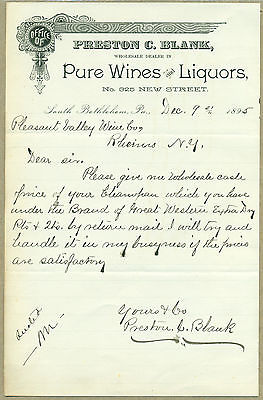 OFFICE OF
PRESTON C. BLANK,
WHOLESALE DEALER IN
PURE WINES AND LIQUORS,
No. 325 NEW STREET.
South Bethlehem, Pa., Dec. 9th 1895
Pleasant Valley Wine Co,
Rheims N.Y.
Dear sir.
Please give me wholesale cash
price of your Champan which you have
under the Brand of Great Western Extra Dry
Pts & Qts. by return mail I will try and
handle it in my busyness if the prices
are satisfactory
Yours & Co
Preston C. Blank